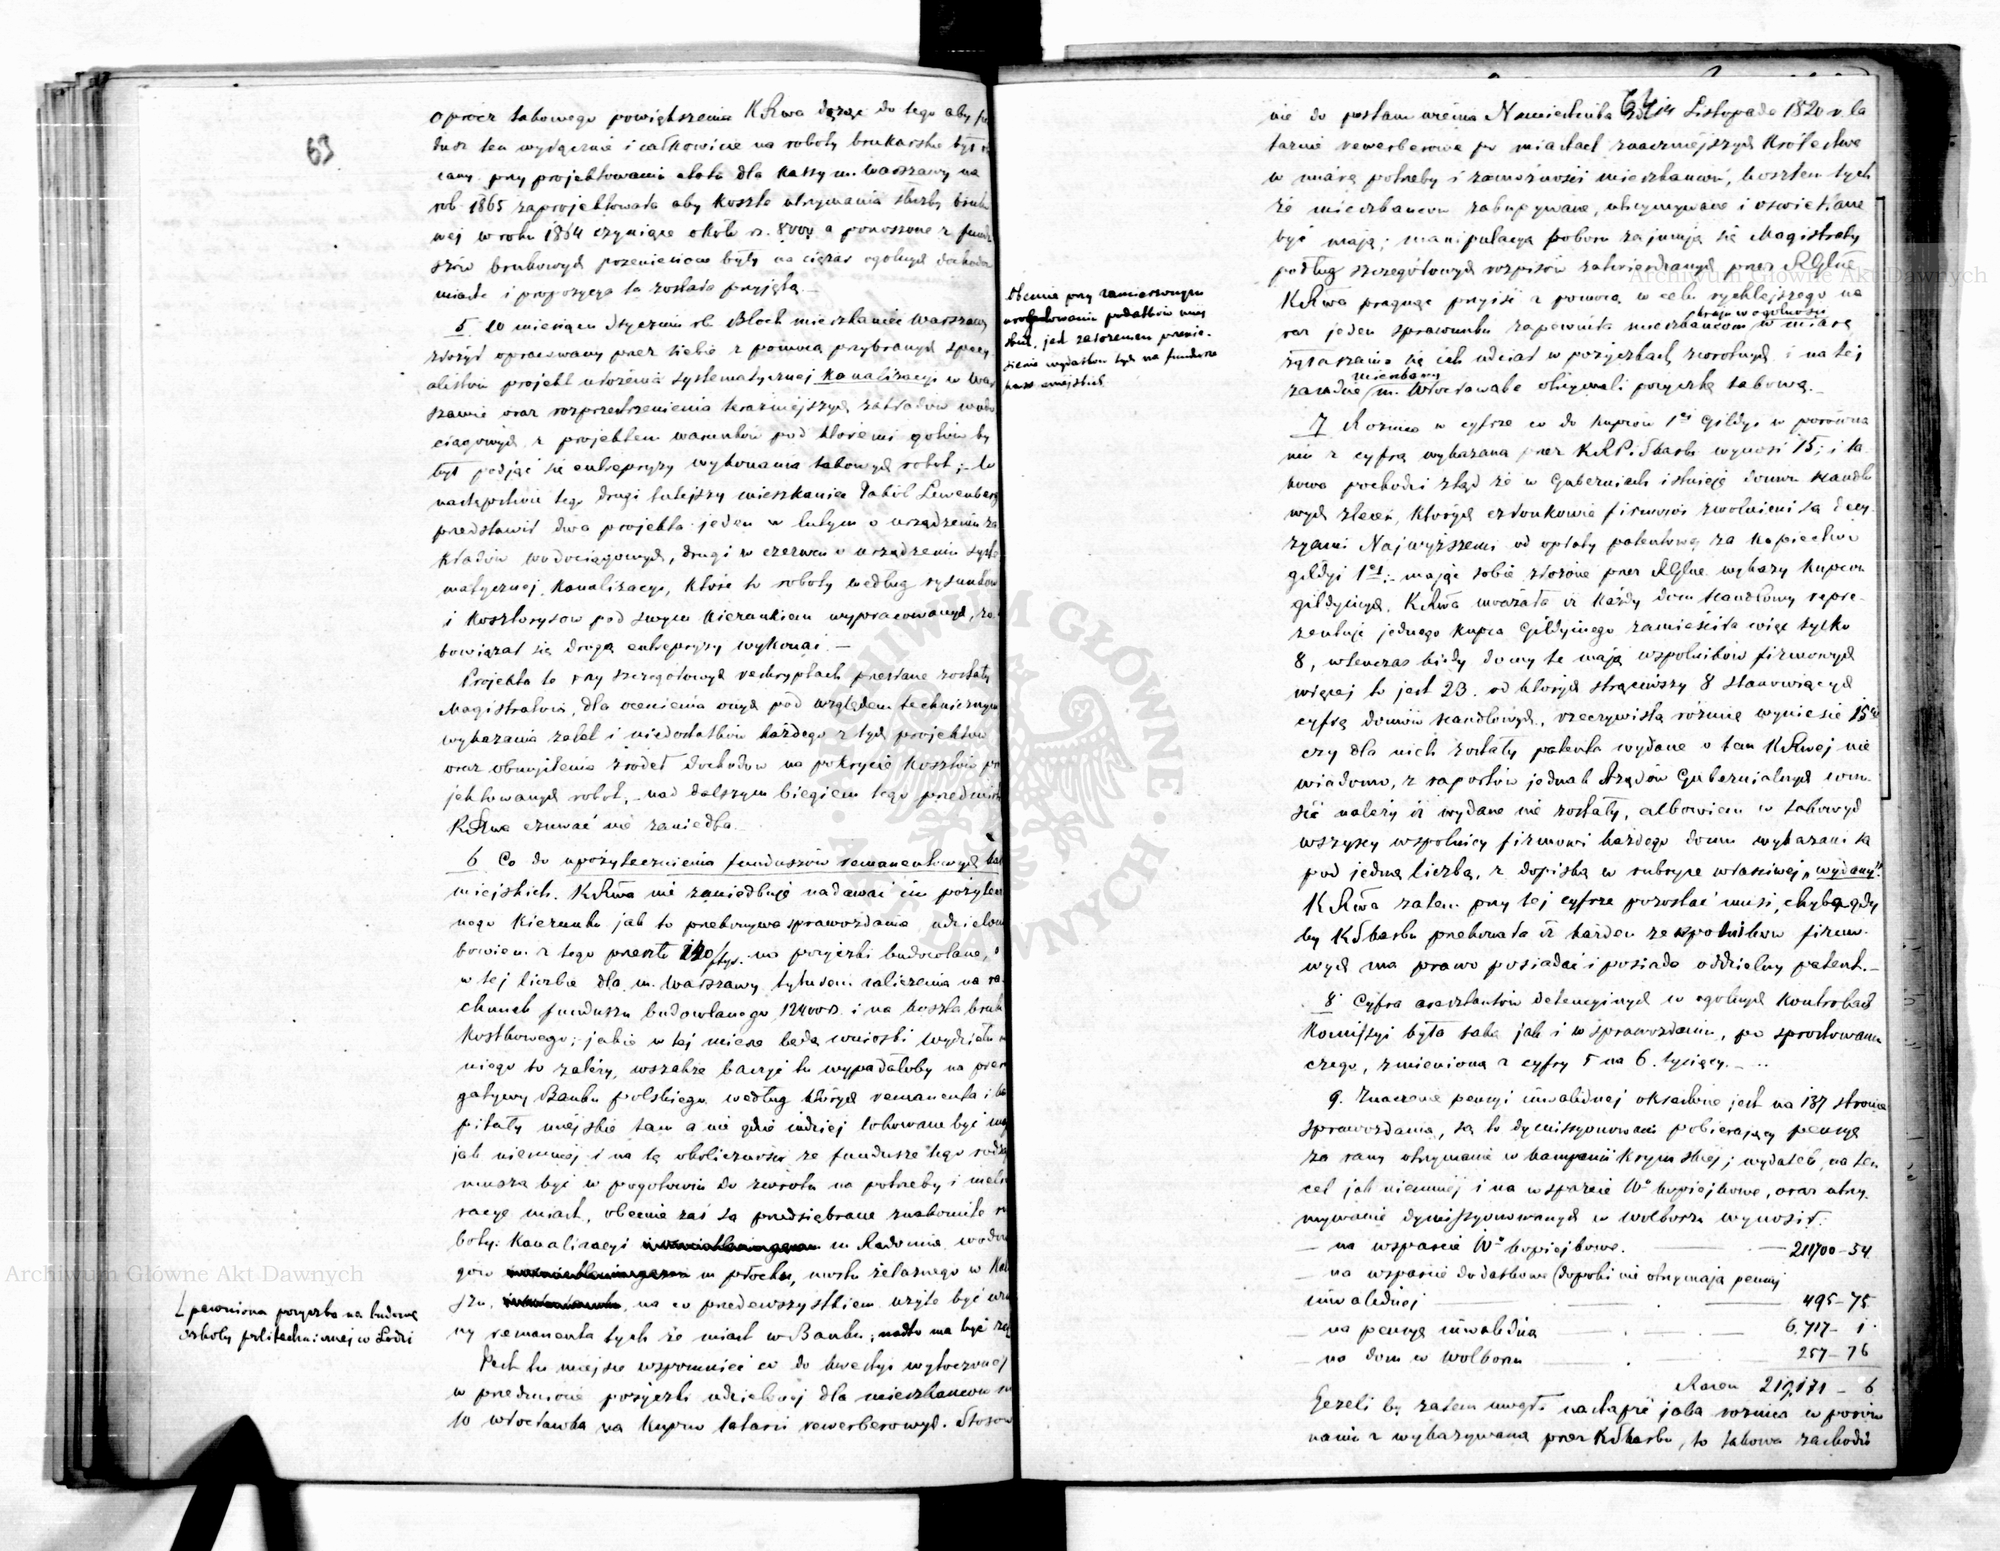 63
oprócz takowego powiększenia KRwa dążąc do tego aby fun
dusz ten wyłącznie i całkowicie na roboty brukarskie był
cany przy projektowaniu etatu dla Kassy m. Warszawy na
rok 1865 zaprojektowała aby koszta utrzymania służby bruko
wej w roku 1864 czyniące około rs. 8000 a ponoszone z fundu
szów brukowych przeniesione były na ciężar ogólnych dochodów
miasta i propozycya ta została przyjętą.
5. W miesiącu Styczniu rb. Bloch mieszkaniec Warszawy
złożył opracowany przez siebie z pomocą przybranych specy
alistów projekt ułożenia systematycznej Kanalizacyi w War
szawie oraz rozprzestrzenienia teraźniejszych zakładów wodo
ciągowych z projektem warunków pod któremi gotów by
był podjąć się entrepryzy wykonania takowych robót; w
następstwie tego drugi tutejszy mieszkaniec Jakób Lewenberg
przedstawił dwa projekta jeden w lutym o urządzeniu za
kładów wodociągowych, drugi w czerwcu o urządzeniu syste
matycznej Kanalizacyi, które to roboty według rysunków
i kosztorysów pod swym kierunkiem wypracowanych, zo
bowiązał się drogą entrepryzy wykonać. –
Projekta te przy szczegółowych reskryptach przesłane zostały
Magistratowi, dla ocenienia onych pod względem technicznym
wykazania zalet i niedostatków każdego z tych projektów
oraz obmyślenia źródeł dochodów na pokrycie kosztów pro
jektowanych robót, – nad dalszym biegiem tego przedmiotu
KRwa czuwać nie zaniedba.
6 Co do upożytecznienia funduszów remanentowych kas
miejskich. KRwa nie zaniedbuje nadawać im pożytecz
nego kierunku jak to przekonywa sprawozdanie, udzielono
bowiem z tego przeszło 120/tys. na pożyczki budowlane,
w tej liczbie dla m. Warszawy tytułem zaliczenia na ra
chunek funduszu budowlanego 12400 rs. i na koszta bruku
kostkowego; jakie w tej mierze będą wnioski wydziału
niego to zależy, wszakże baczyć tu wypadałoby na prero
gatywy Banku polskiego według których remanenta i ka
pitały miejskie tam a nie gdzie indziej lokowane być mają
jak niemniej i na tę okoliczność że fundusze tego rodzaju
muszą być w pogotowiu do zwrotu na potrzeby i melio
racye miast, obecnie zaś są przedsiębrane znakomite ro
boty: Kanalizacyi m. Radomia wodocią
gów m. Płocku, mostu żelaznego w Kali
szu, na co przedewszystkiem użyte być win
ny remanenta tych że miast w Banku; nadto ma być za
⌊pewniona pożyczka na budowę
szkoły politechnicznej w Łodzi
Jest tu miejsce wspomnieć co do kwestyi wytoczonej
w przedmiocie pożyczki udzielonej dla mieszkańców m
to Włocławka na kupno latarń rewerberowych. Stosow
64
nie do postanowienia Namiestnika z d. 14 Listopada 1820 r. la
tarnie rewerberowe po miastach znaczniejszych Królestwa
w miarę potrzeby i zamożności mieszkańców, kosztem tych
że mieszkańców zakupywane, utrzymywane i oświetlane
być mają; manipulacyą poboru zajmują się Magistraty
podług szczegółowych rozpisów zatwierdzanych przez RGlne
KRwa pragnąc przyjść z pomocą w celu rychlejszego na
raz jeden sprawunku zapewniła mieszkańcom kraju w ogólności w miarę
zgłaszania się ich udział w pożyczkach zwrotnych i na tej
zasadzie mieszkańcy m. Włocławka otrzymali pożyczkę takową. –
Obecnie przy zamierzonym
uregulowaniu podatków miej
skich, jest zastrzeżone przenie-
sienie wydatków tych na fundusze
kass miejskich
7 Różnica w cyfrze co do kupców 1ej Gildyi w porówna
niu z cyfrą wykazaną przez KRP. Skarbu wynosi 15; i ta
kowa pochodzi ztąd że w Guberniach istnieją domy handlo
wych zleceń, których członkowie firmowi zwolnieni są decy
zyami Najwyższemi od opłaty patentowej za kupiectwo
gildyi 1ej; mając sobie złożone przez RGlne wykazy kupców
gildyjnych, KRwa uważała iż każdy dom handlowy repre-
zentuje jednego kupca Gildyjnego zamieściła więc tylko
8, wtenczas kiedy domy te mają wspólników firmowych
więcej to jest 23. od których strąciwszy 8 stanowiących
cyfrę domów handlowych, rzeczywista różnica wyniesie 15
czy dla nich zostały patenta wydane o tem KRwej nie
wiadomo, z raportów jednak Rządów Gubernialnych wno-
sić należy iż wydane nie zostały, albowiem w takowych
wszyscy wspólnicy firmowi każdego domu wykazani są
pod jedną liczbą, z dopiską w rubryce właściwej „wydany".
KRwa zatem przy tej cyfrze pozostać musi, chyba gdy
by KSkarbu przekonała iż każden ze wspólników firmo-
wych ma prawo posiadać i posiada oddzielny patent. –
8 Cyfra aresztantów detencyjnych w ogólnych kontrolach
Komissyi była taka jak i w sprawozdaniu, po sprostowaniu
czego, zmienioną z cyfry 5 na 6. tysięcy. – ..
9. Znaczenie pensyi inwalidnej określone jest na 137 stronie
sprawozdania, są to dymissyonowani pobierający pensyę
za rany otrzymane w kampanii Krymskiej; wydatek na ten
cel jak niemniej i na wsparcie W° kopiejkowe, oraz utrzy-
mywanie dymissyonowanych w Wolborzu wynosił:
– na wsparcie W° kopiejkowe. — — 211700 – 54
– na wsparcie dodatkowe (dopóki nie otrzymają pensyi
inwalidnej — — — 495 – 75
– na pensyę inwalidną — . — 6,717 – 1
– na dom w Wolborzu . . 257 – 76
Razem 219,171 – 6
Jeżeli by zatem mogła nastąpić jaka różnica w porów
naniu z wykazywaną przez KSkarbu, to takowa zachodzi